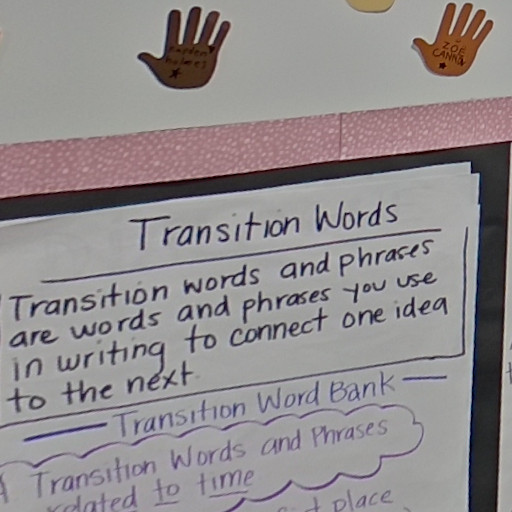 ZOE
Transition Words
Transition words and phrases
are words and phrases you use
in writing to connect one idea
to the next.
Transition Word Bank
Transition Words and Phrases
related to time
place